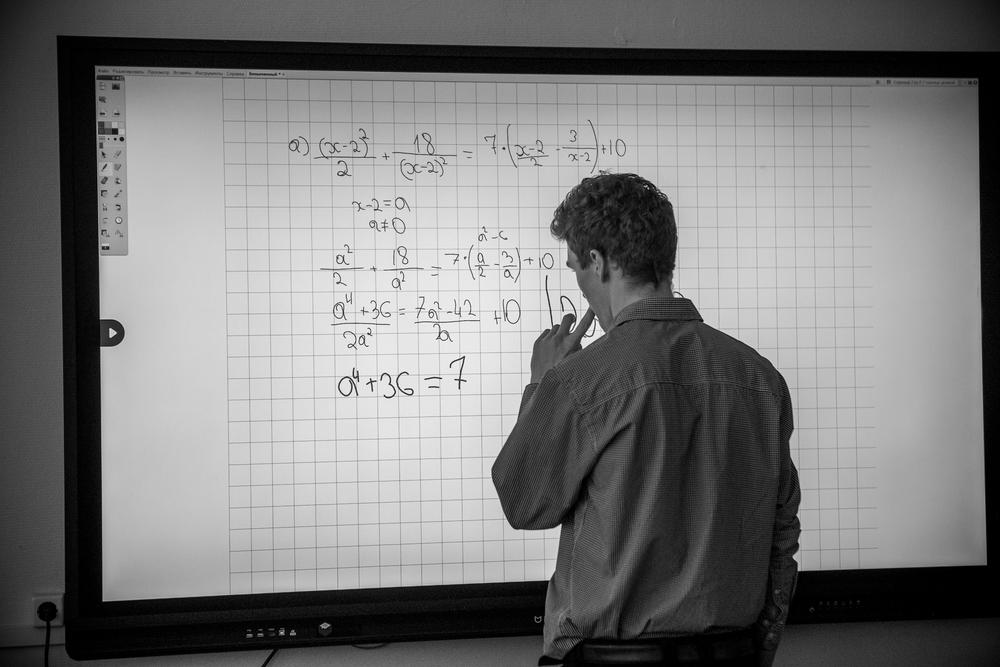 Файл Редактировать Просмотр Вставить Инструменты Справка
а) (x-2)²/2 + 18/(x-2)² = 7·(x-2/2 - 3/x-2)+10
x-2=a
a≠0
a²-6
a²/2 + 18/a² = 7·(a/2 - 3/a)+10
a⁴+36/2a² = 7a²-42/2a +10
a⁴+36=7